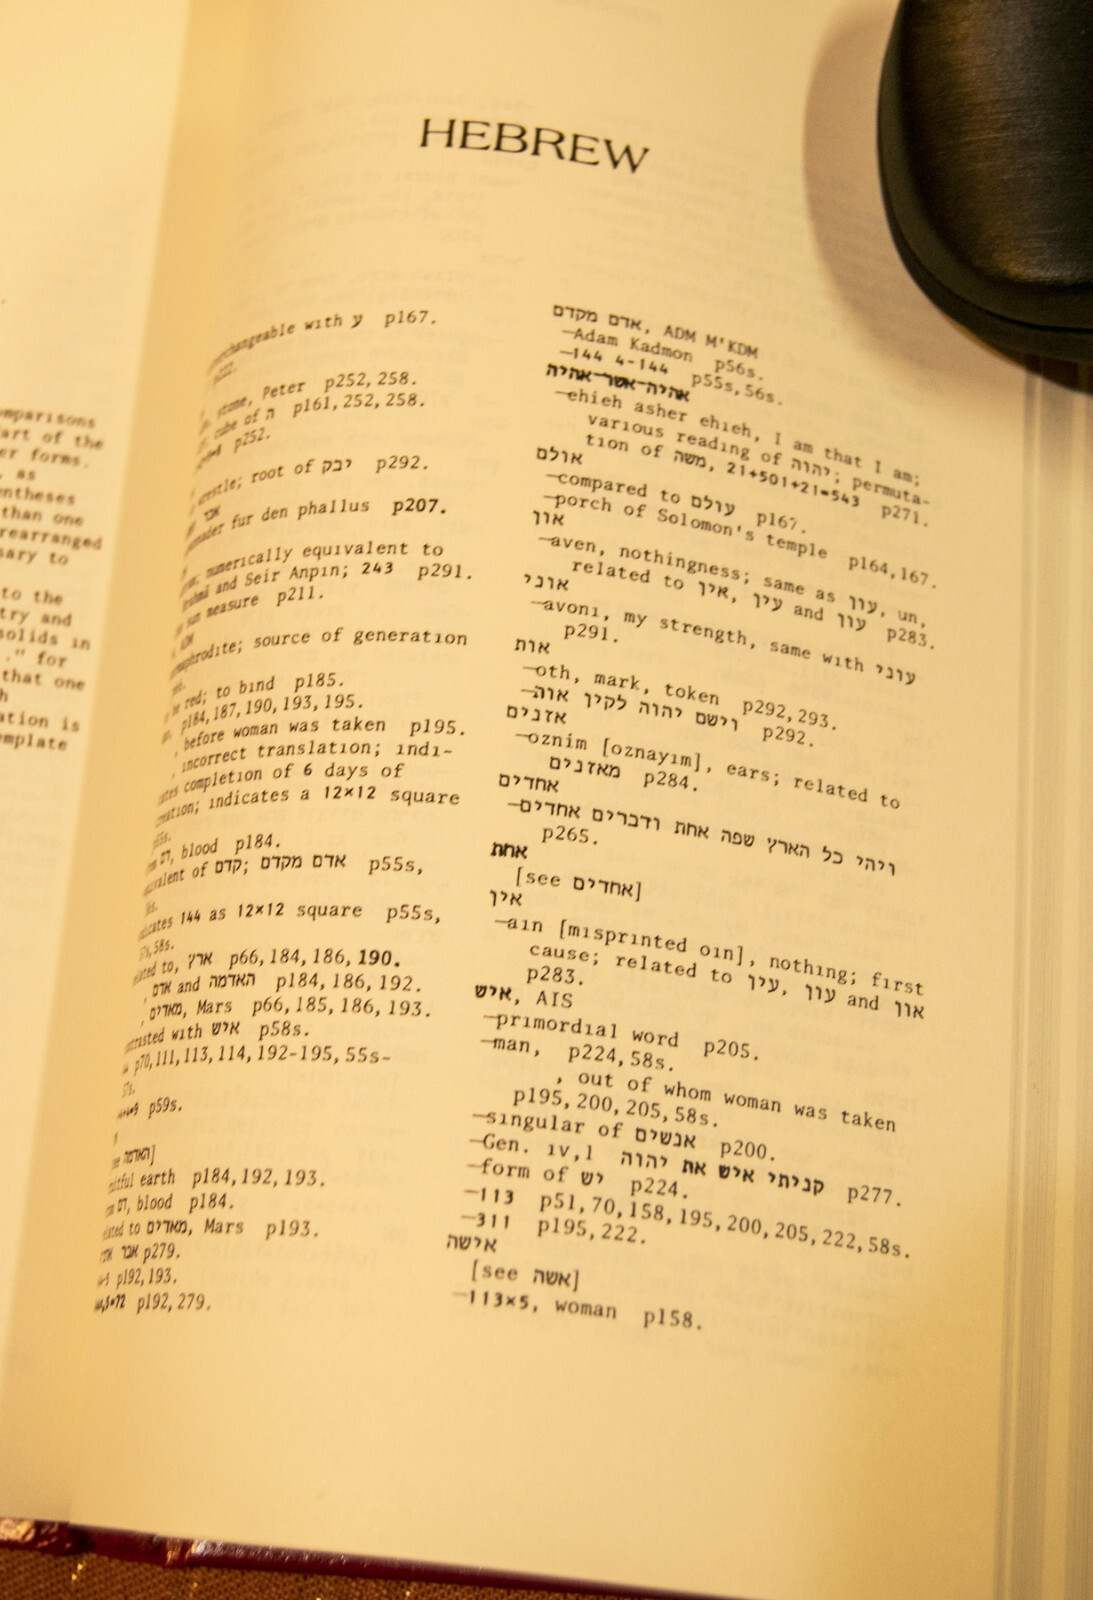 mparisons
art of the
er forms.
, as
ntheses
than one
rearranged
sary to
to the
try and
solids in
." for
that one
h
ation is
emplate
HEBREW
changeable with ע p167.
stone, Peter p252,258.
cube of ה p161,252,258.
p252.
; root of יבק p292.
für den phallus p207.
, numerically equivalent to
and Seir Anpin; 243 p291.
sun measure p211.
; source of generation
red; to bind p185.
p184,187,190,193,195.
, before woman was taken p195.
, incorrect translation; indi-
completion of 6 days of
; indicates a 12×12 square
דם, blood p184.
of קדם; אדם מקדם p55s,
144 as 12×12 square p55s,
57s,58s.
to, ארץ p66,184,186,190.
, אדם and האדמה p184,186,192.
, מאדים, Mars p66,185,186,193.
with איש p58s.
p70,111,113,114,192-195,55s-
57s.
p59s.
האדמה]
earth p184,192,193.
דם, blood p184.
to מאדים, Mars p193.
אבר p279.
p192,193.
p192,279.
אדם מקדם, ADM M'KDM
—Adam Kadmon p56s.
—144 4-144 p55s,56s.
אהיה אשר אהיה
—ehieh asher ehieh, I am that I am;
various reading of יהוה; permuta-
tion of משה, 21+501+21=543 p271.
אולם
—compared to עולם p167.
—porch of Solomon's temple p164,167.
און
—aven, nothingness; same as עון, un,
related to אין, עין and עון p283.
אוני
—avoni, my strength, same with עוני
p291.
אות
—oth, mark, token p292,293.
—וישם יהוה לקין אות p292.
אזנים
—oznim [oznayim], ears; related to
מאזנים p284.
אחדים
—ויהי כל הארץ שפה אחת ודברים אחדים
p265.
אחת
[see אחדים]
אין
—ain [misprinted oin], nothing; first
cause; related to עין, עון and און
p283.
איש, AIS
—primordial word p205.
—man, p224,58s.
, out of whom woman was taken
p195,200,205,58s.
—singular of אנשים p200.
—Gen. iv,1 קניתי איש את יהוה p277.
—form of יש p224.
—113 p51,70,158,195,200,205,222,58s.
—311 p195,222.
אישה
[see אשה]
—113×5, woman p158.